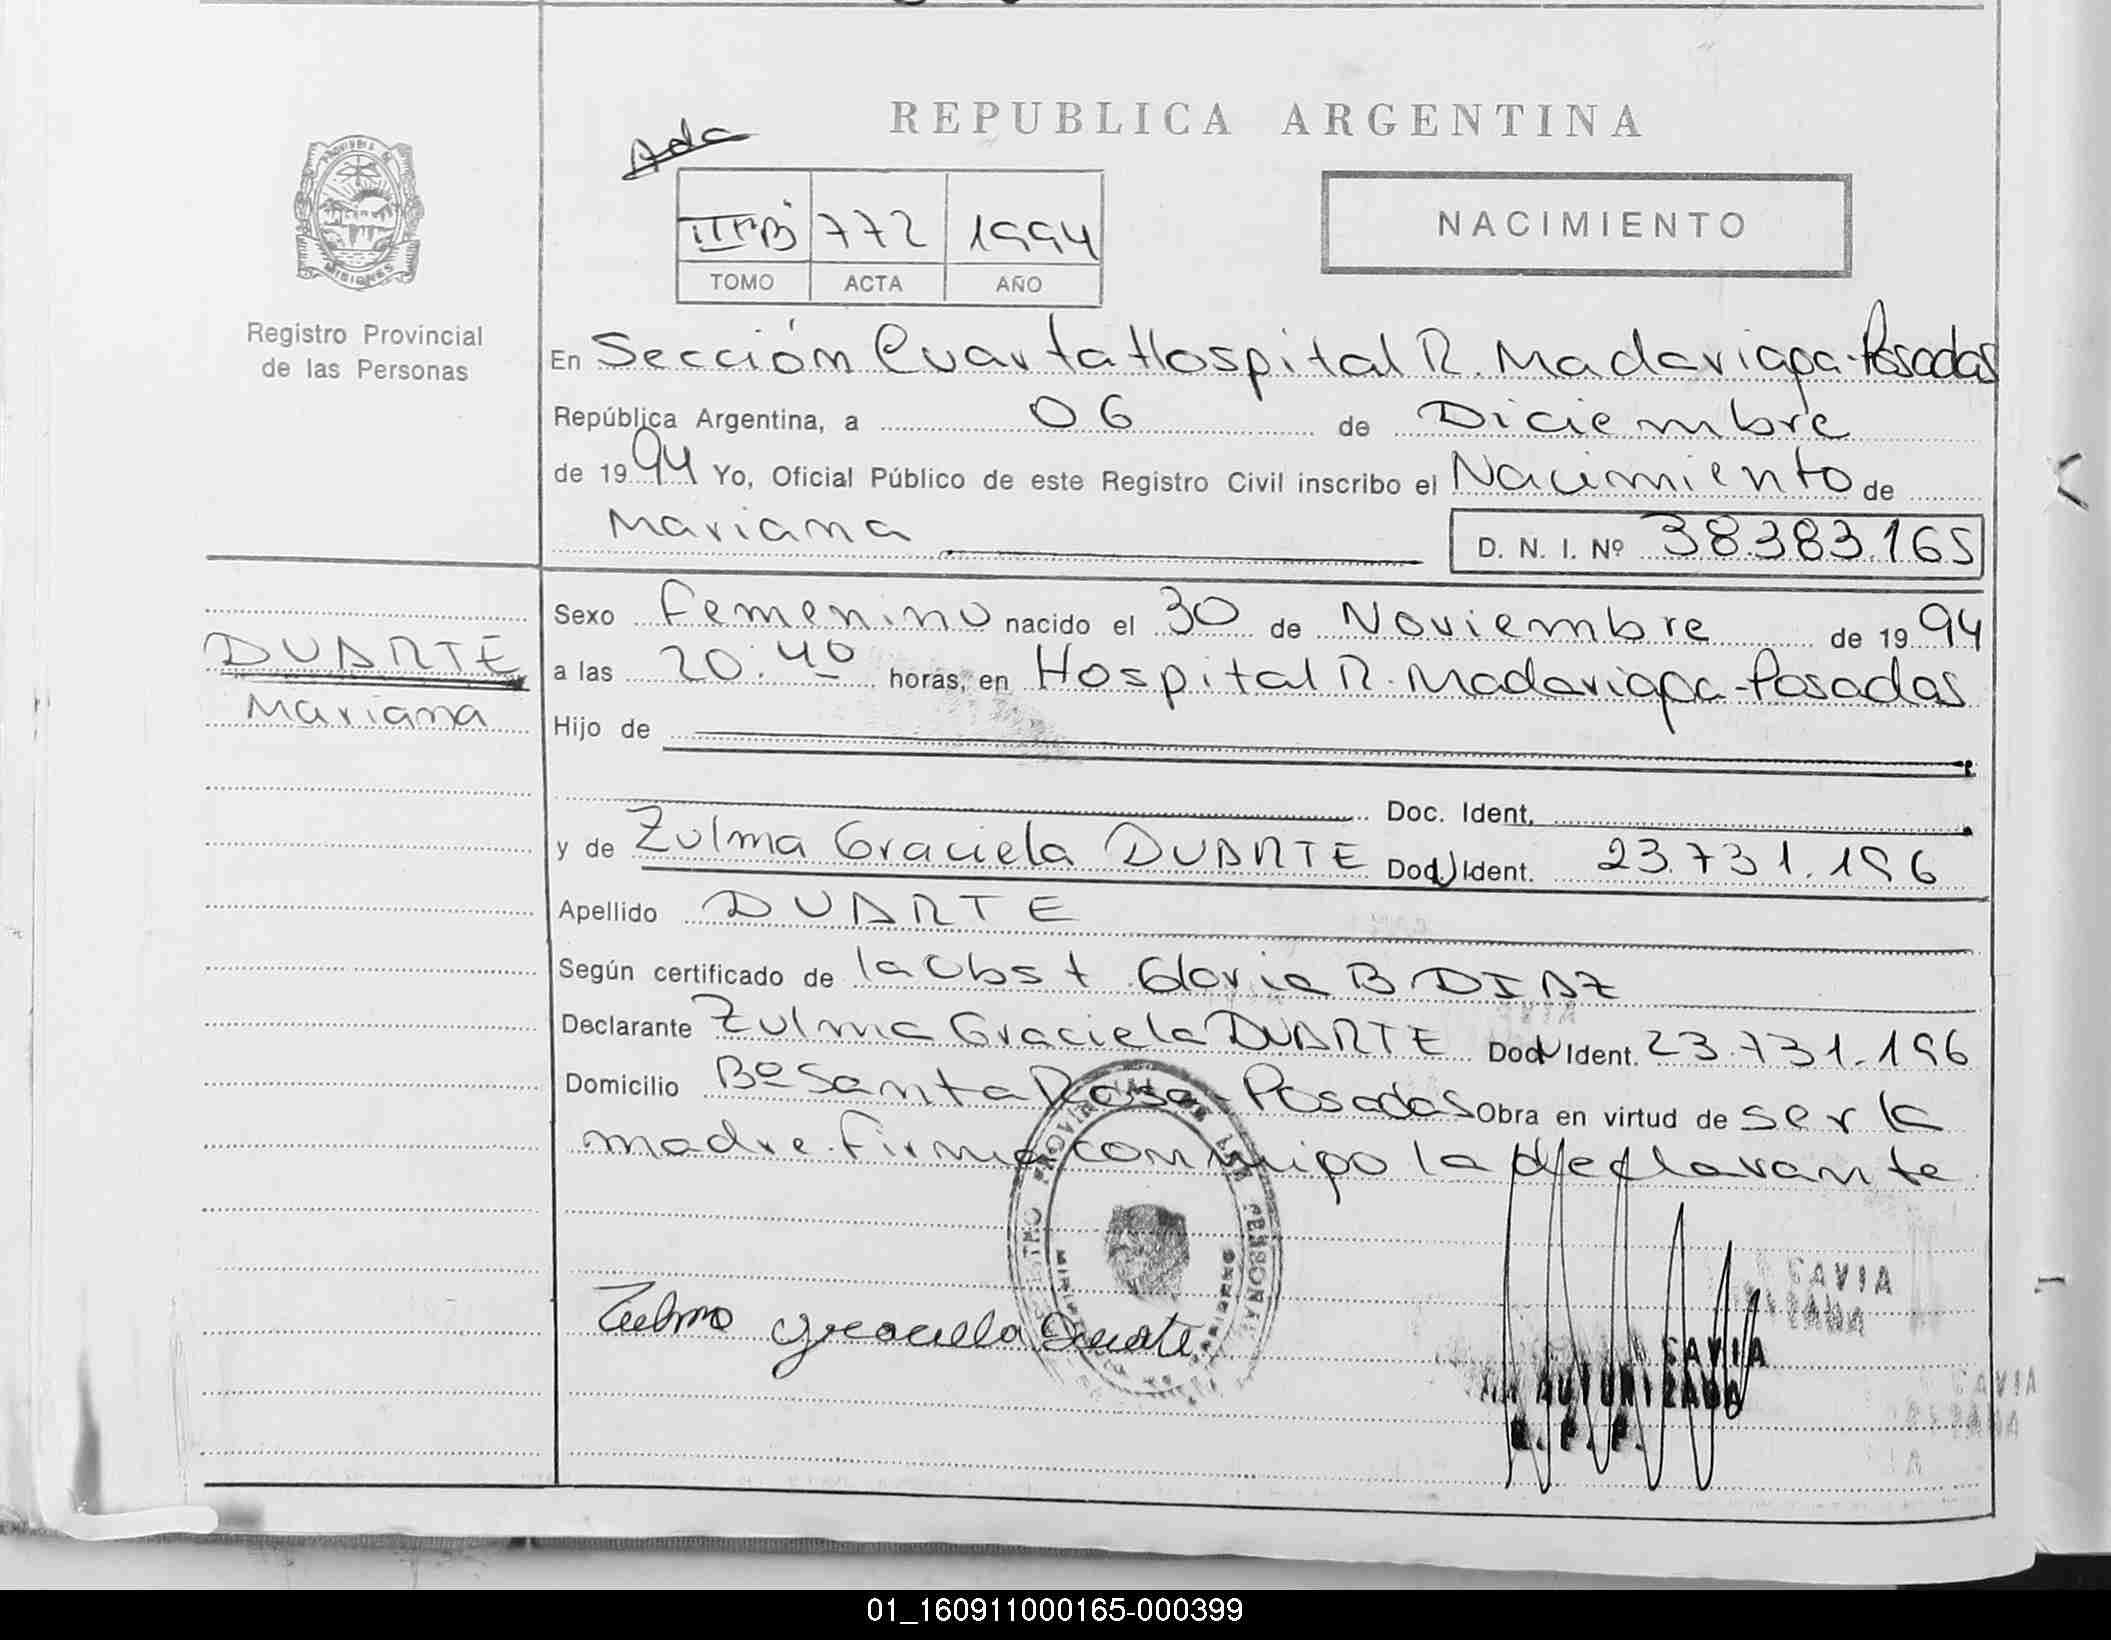 REPUBLICA ARGENTINA
Ada
772 1994
TOMO ACTA AÑO
NACIMIENTO
PROVINCIA DE
MISIONES
Registro Provincial
de las Personas
En Sección Cuarta Hospital R. Madariaga-Posadas
República Argentina, a 06 de Diciembre
de 1994 Yo, Oficial Público de este Registro Civil inscribo el Nacimiento de
Mariana D. N. I. Nº 38.383.165
DUARTE
Mariana
Sexo Femenino nacido el 30 de Noviembre de 1994
a las 20:40 horas, en Hospital R. Madariaga-Posadas
Hijo de
Doc. Ident.
y de Zulma Graciela DUARTE Doc. Ident. 23.731.196
Apellido DUARTE
Según certificado de la Obst Gloria B DIAZ
Declarante Zulma Graciela DUARTE Doc. Ident. 23.731.196
Domicilio Bº Santa Rosa-Posadas Obra en virtud de ser la
madre. Firma conmigo la declarante
Zulma Graciela Duarte
SAVIA
AUTORIZADA
R. P. P.
01_160911000165-000399